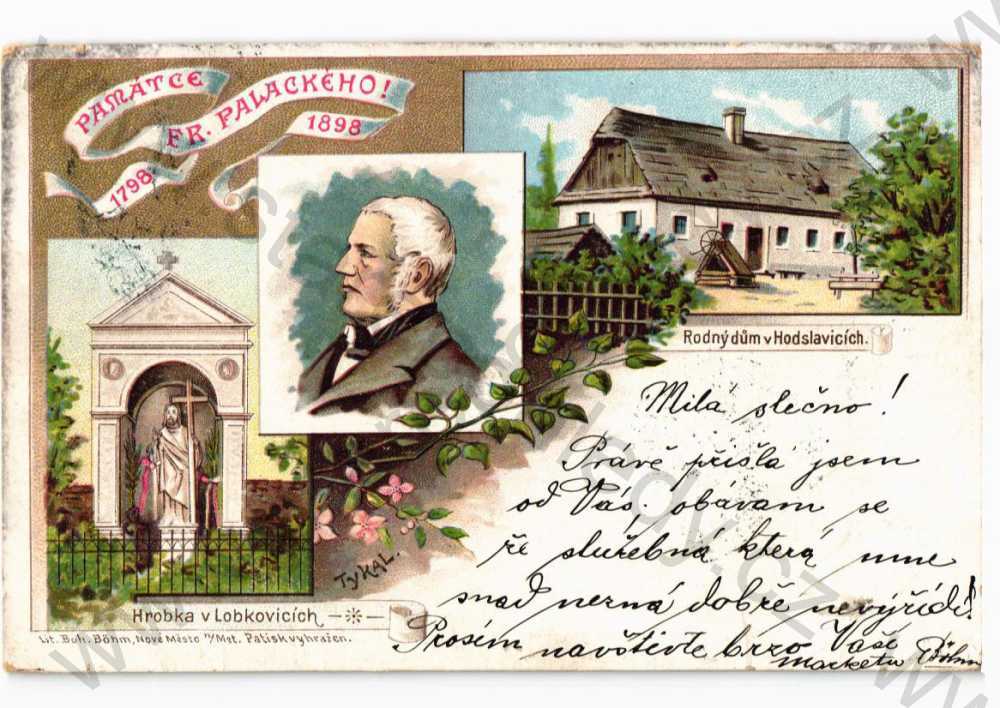 PAMÁTCE
FR. PALACKÉHO!
1798
1898
Rodný dům v Hodslavicích.
Milá slečno!
Právě přišla jsem
od Vás. obávam se
že služebná která mne
snad nezná dobře nevyřídí!
Prosím navštivte brzo Vaši
Böhm
TyKAL.
Hrobka v Lobkovicích
Lit. Boh. Böhm, Nové Město n/Met. Patisk vyhražen.